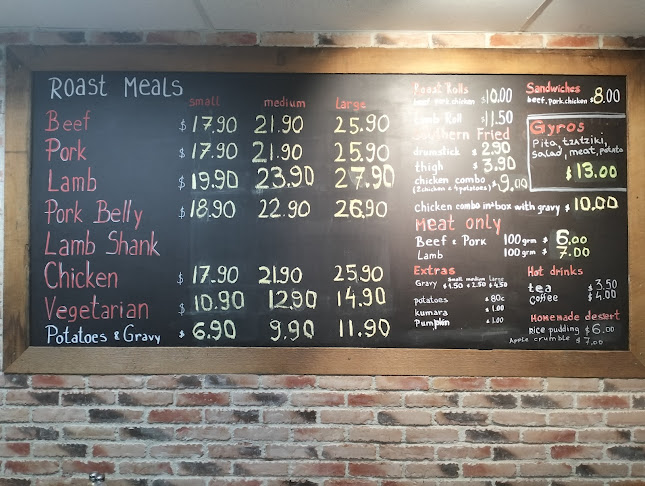 Roast Meals
small medium large
Beef $17.90 21.90 25.90
Pork $17.90 21.90 25.90
Lamb $19.90 23.90 27.90
Pork Belly $18.90 22.90 26.90
Lamb Shank
Chicken $17.90 21.90 25.90
Vegetarian $10.90 12.90 14.90
Potatoes & Gravy $6.90 9.90 11.90
Roast Rolls
beef. pork. chicken $10.00
Lamb Roll $11.50
Southern Fried
drumstick $2.90
thigh $3.90
chicken combo
(2 chicken & 4 potatoes) $9.00
chicken combo in a box with gravy $10.00
Meat only
Beef & Pork 100grm $6.00
Lamb 100grm $7.00
Extras
small medium large
Gravy $1.50 $2.50 $4.50
potatoes $80c
kumara $1.00
Pumpkin $1.00
Sandwiches
beef. pork. chicken $8.00
Gyros
Pita, tzatziki,
salad, meat, potato
$13.00
Hot drinks
tea $3.50
coffee $4.00
Homemade dessert
rice pudding $6.00
Apple crumble $7.00